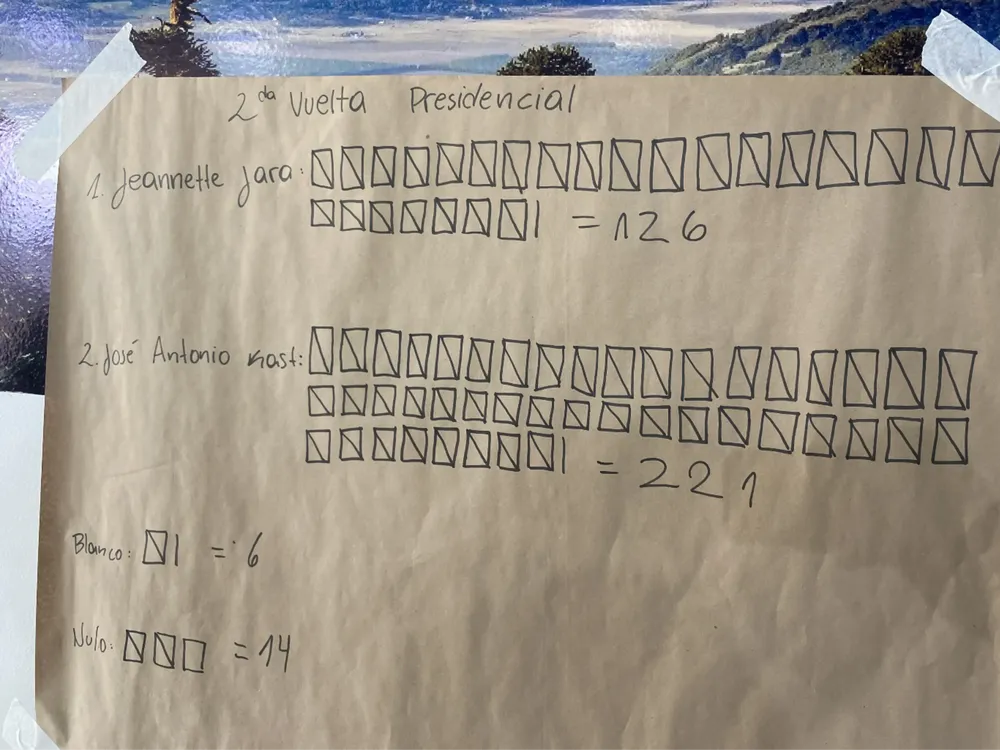 2da Vuelta Presidencial
1. Jeannette Jara:
= 126
2. José Antonio Kast:
= 221
Blanco: = 6
Nulo: = 14